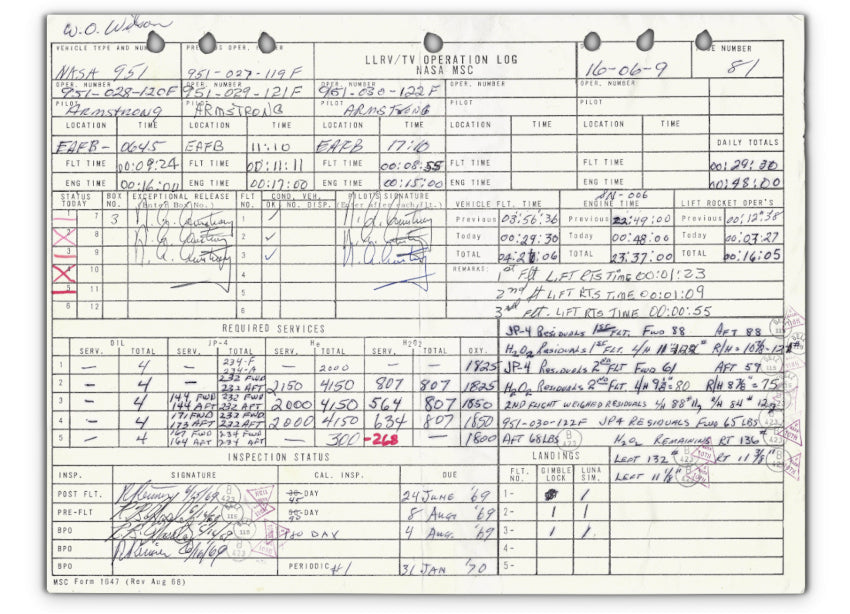 W.O. Wilson
VEHICLE TYPE AND NUMBER
NASA 951
951-027-119F
LLRV/TV OPERATION LOG
NASA MSC
16-06-9
NUMBER
81
OPER. NUMBER
951-028-120F
951-029-121F
951-030-122F
OPER. NUMBER
OPER. NUMBER
PILOT ARMSTRONG
PILOT ARMSTRONG
PILOT ARMSTRONG
PILOT
PILOT
LOCATION TIME LOCATION TIME LOCATION TIME LOCATION TIME LOCATION TIME DAILY TOTALS
EAFB- 0645 EAFB 11:10 EAFB 17:10
FLT TIME 00:09:24 FLT TIME 00:11:11 FLT TIME 00:08:55 FLT TIME FLT TIME 00:29:30
ENG TIME 00:16:00 ENG TIME 00:17:00 ENG TIME 00:15:00 ENG TIME ENG TIME 00:48:00
STATUS TODAY BOX NO. EXCEPTIONAL RELEASE FLT NO. COND. VEH. OK NO. DISP. PILOT'S SIGNATURE
VEHICLE FLT. TIME SN-006 ENGINE TIME LIFT ROCKET OPER'S
Previous 03:56:36 Previous 22:49:00 Previous 00:12:38
Today 00:29:30 Today 00:48:00 Today 00:03:27
TOTAL 04:26:06 TOTAL 23:37:00 TOTAL 00:16:05
REMARKS: 1st Flt LIFT RTS TIME 00:01:23
2nd flt LIFT RTS TIME 00:01:09
3rd flt. LIFT RTS TIME 00:00:55
REQUIRED SERVICES
OIL JP-4 He H2O2
SERV. TOTAL SERV. TOTAL SERV. TOTAL SERV. TOTAL OXY.
1 - 4 234-F 234-A - 2000 1825
2 - 4 - 232 FWD 232 AFT 2150 4150 807 807 1825
3 - 4 144 FWD 144 AFT 232 FWD 232 AFT 2000 4150 564 807 1850
4 - 4 171 FWD 173 AFT 232 FWD 232 AFT 2000 4150 634 807 1850
5 - 4 167 FWD 164 AFT 234 FWD 234 AFT - 300 -268 1800
JP-4 RESIDUALS 1st FLT. FWD 88 AFT 88
H2O2 RESIDUALS 1st FLT. L/H
JP-4 RESIDUALS 2nd FLT FWD 61 AFT 59
H2O2 RESIDUALS 2nd FLT. L/H 9⅜=80 R/H 8⅞"=75
2ND FLIGHT WEIGHED RESIDUALS L/H 88
951-030-122F JP4 RESIDUALS FWD 65 LBS
AFT 68 LBS H2O2 REMAINING RT 136#
LEFT 132# RT 11⅜"
LEFT 11⅛"
INSPECTION STATUS
INSP. SIGNATURE CAL. INSP. DUE
POST FLT. DAY 24 JUNE '69
PRE-FLT DAY 8 Aug. '69
BPO 180 DAY 4 Aug. '69
BPO
BPO PERIODIC #1 31 JAN '70
LANDINGS
FLT. NO. GIMBLE LOCK LUNA SIM.
1- 1
2- 1 1
3- 1 1
4-
5-
MSC Form 1647 (Rev Aug 66)